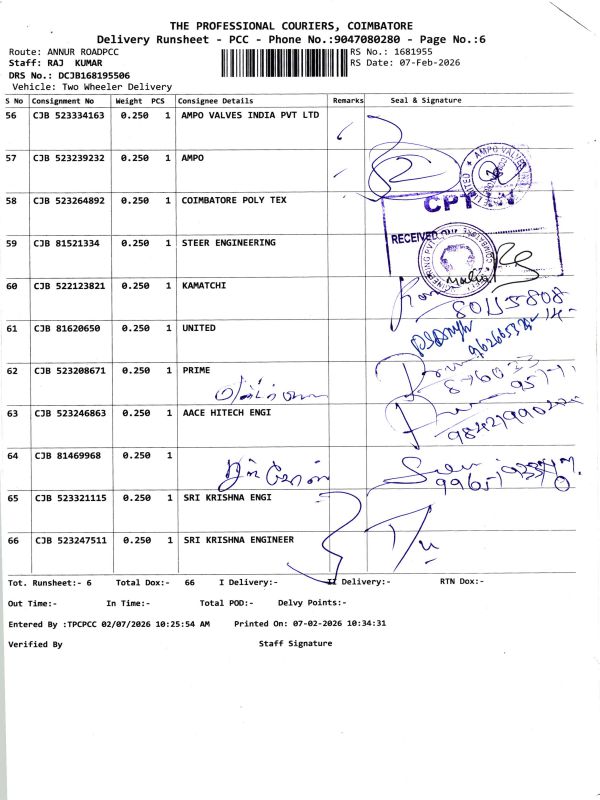 THE PROFESSIONAL COURIERS, COIMBATORE
Delivery Runsheet - PCC - Phone No.:9047080280 - Page No.:6
Route: ANNUR ROADPCC RS No.: 1681955
Staff: RAJ KUMAR RS Date: 07-Feb-2026
DRS No.: DCJB168195506
Vehicle: Two Wheeler Delivery
S No Consignment No Weight PCS Consignee Details Remarks Seal & Signature
56 CJB 523334163 0.250 1 AMPO VALVES INDIA PVT LTD
57 CJB 523239232 0.250 1 AMPO
58 CJB 523264892 0.250 1 COIMBATORE POLY TEX
RECEIVED
59 CJB 81521334 0.250 1 STEER ENGINEERING
60 CJB 522123821 0.250 1 KAMATCHI
61 CJB 81620650 0.250 1 UNITED
62 CJB 523208671 0.250 1 PRIME
63 CJB 523246863 0.250 1 AACE HITECH ENGI
64 CJB 81469968 0.250 1
65 CJB 523321115 0.250 1 SRI KRISHNA ENGI
66 CJB 523247511 0.250 1 SRI KRISHNA ENGINEER
Tot. Runsheet:- 6 Total Dox:- 66 I Delivery:- II Delivery:- RTN Dox:-
Out Time:- In Time:- Total POD:- Delvy Points:-
Entered By :TPCPCC 02/07/2026 10:25:54 AM Printed On: 07-02-2026 10:34:31
Verified By Staff Signature